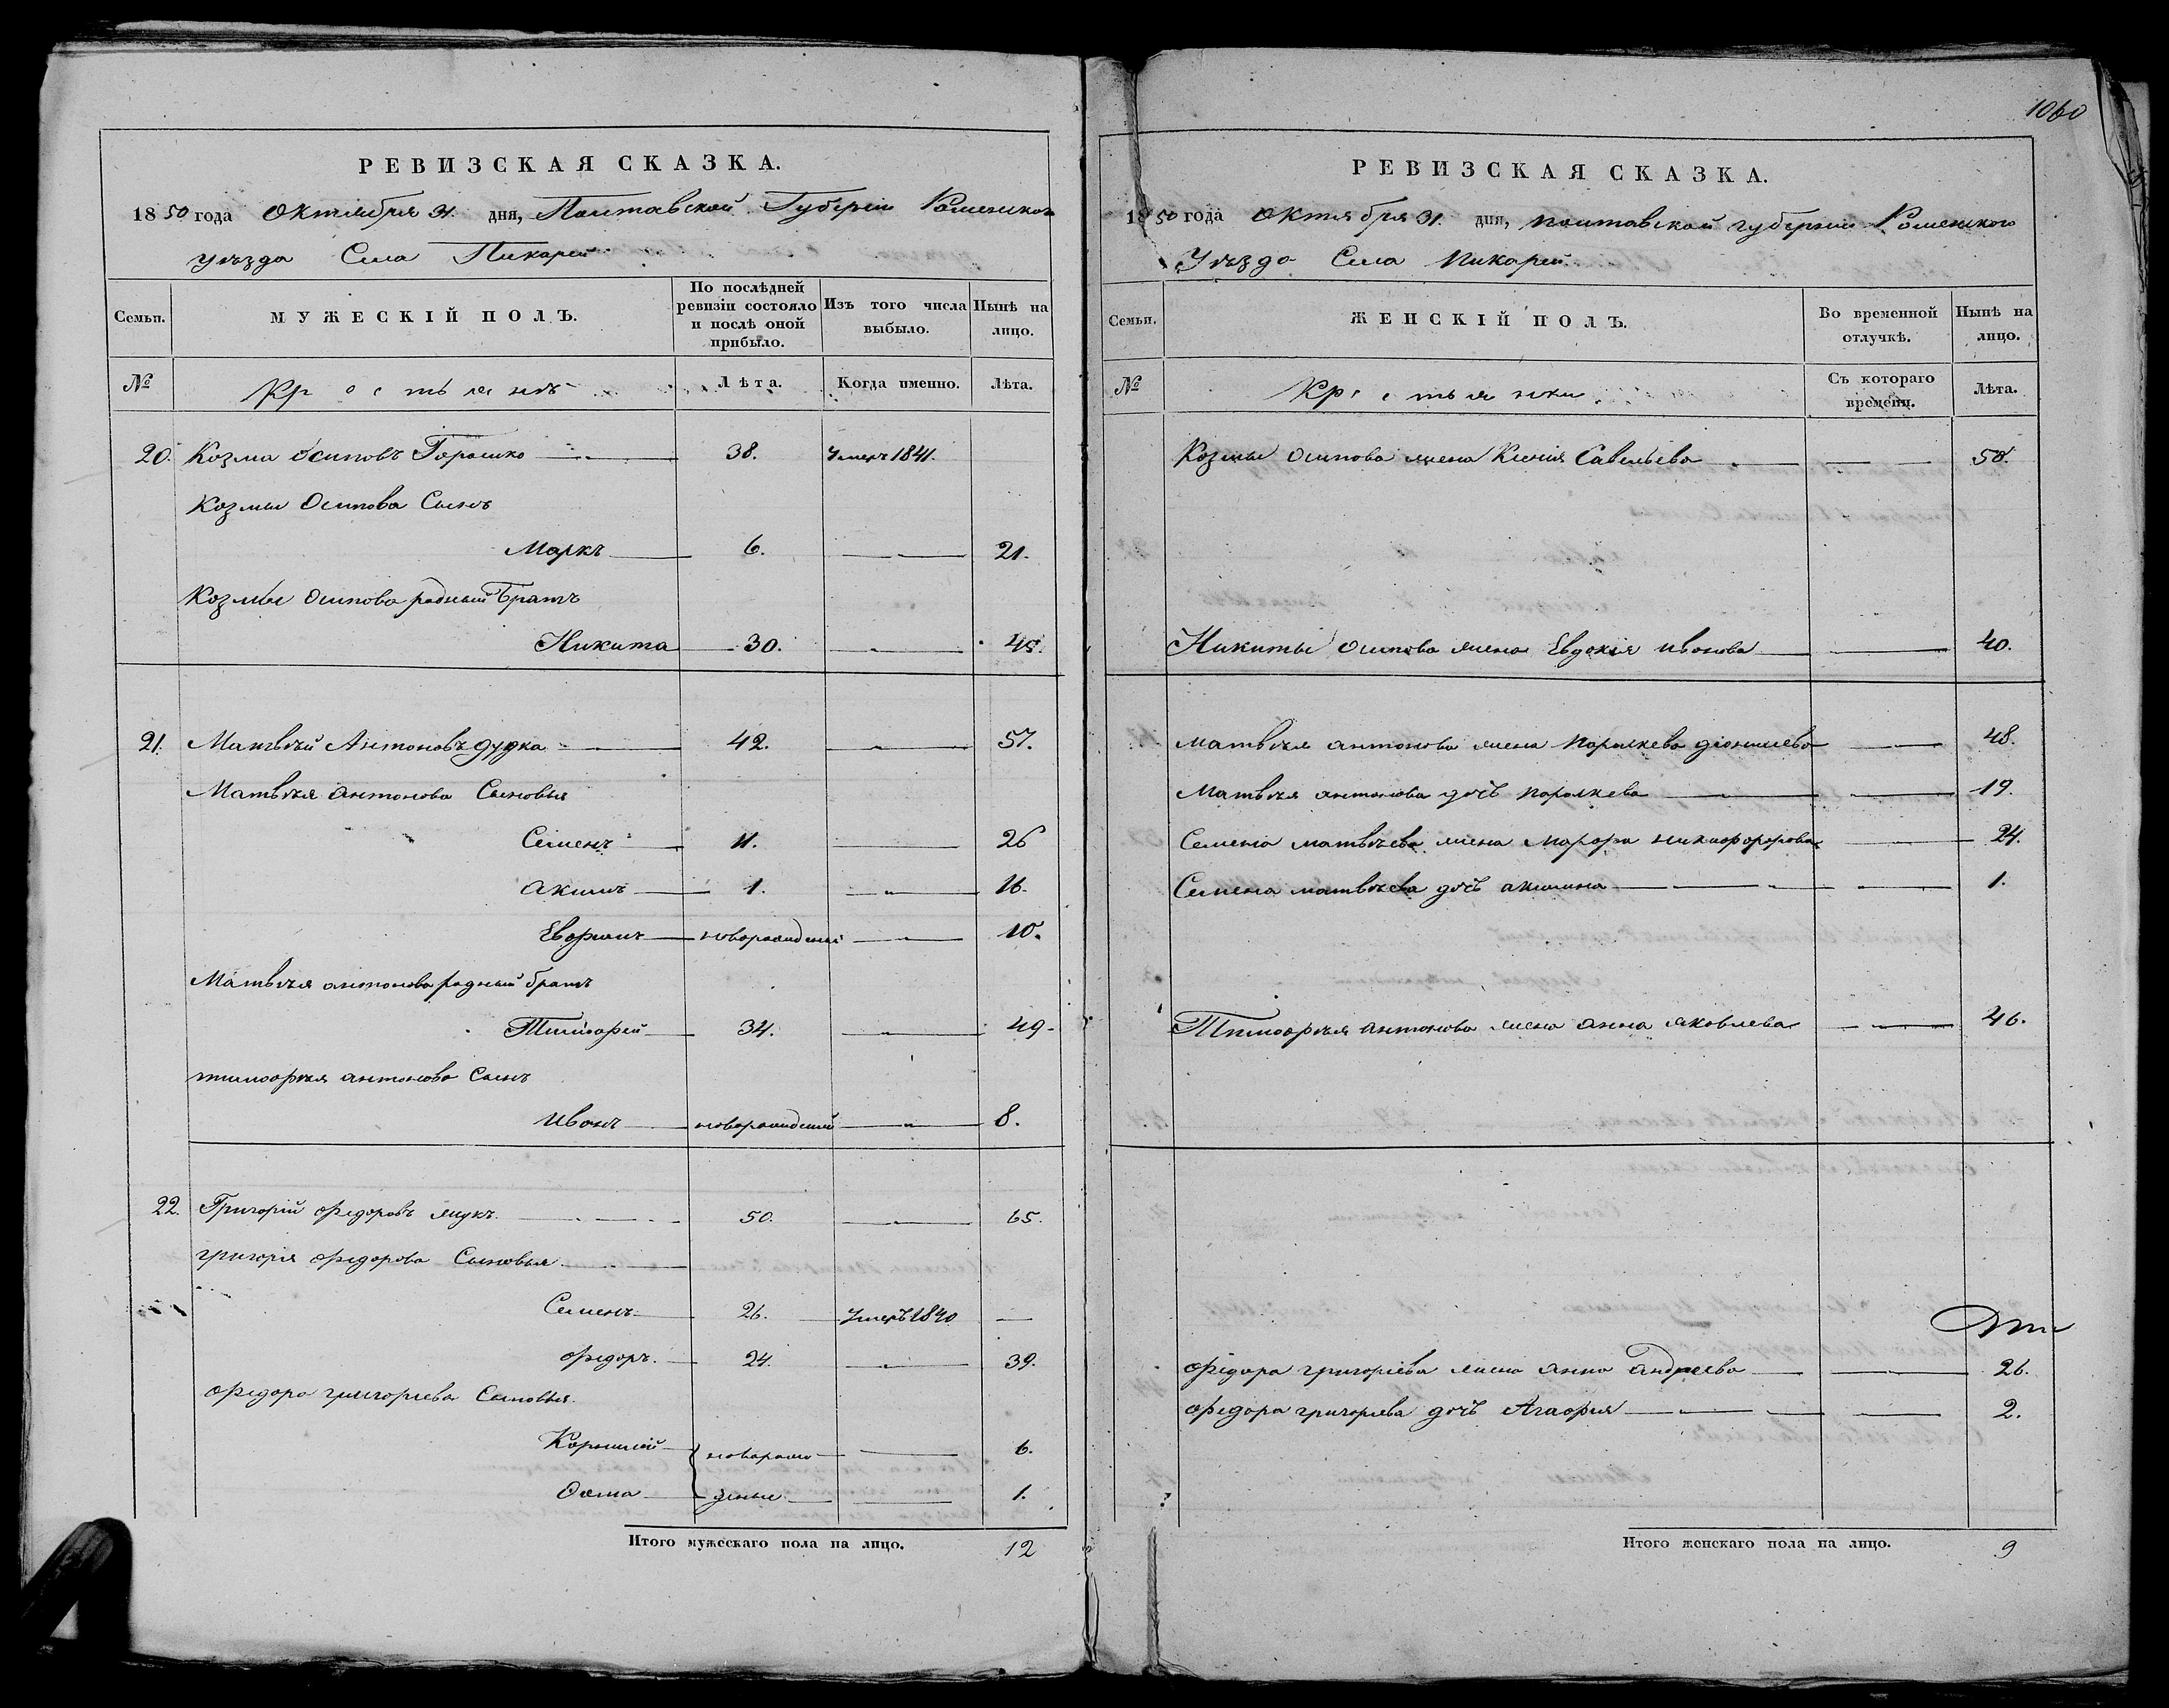 1060
РЕВИЗСКАЯ СКАЗКА.
1850 года Октября 31. дня, Полтавской Губерніи Роменского
уѣзда Села Пикарей
Семьи. МУЖЕСКІЙ ПОЛЪ. По послѣдней ревизіи состояло и послѣ оной прибыло. Изъ того числа выбыло. Нынѣ на лицо.
№ Крестьянъ Лѣта. Когда именно. Лѣта.
20. Козма Осиповъ Горошко 38. Умеръ 1841.
Козмы Осипова Сынъ
Маркъ 6. 21.
Козмы Осипова родный Братъ
Никита 30. 45.
21. Матвѣй Антоновъ дудка 42. 57.
Матвѣя Антонова Сыновья
Семенъ 11. 26
Акимъ 1. 16.
Евфимъ новорожденый 10.
Матвѣя антонова родный братъ
Тимофей 34. 49
тимофея антонова Сынъ
Иванъ новорожденый 8.
22. Григорій Федоровъ жукъ 50. 65.
григорія федорова Сыновья
Семенъ 26. Умеръ 1840
Федоръ. 24. 39.
федора григорьева Сыновья
Корнилій новорож 6.
Фома деные 1.
Итого мужескаго пола на лицо. 12
РЕВИЗСКАЯ СКАЗКА.
1850 года Октября 31. дня, полтавской губерніи Роменского
Уѣзда Села Пикарей
Семьи. ЖЕНСКІЙ ПОЛЪ. Во временной отлучкѣ. Нынѣ на лицо.
№ Крестьянки Съ котораго времени. Лѣта.
Козмы Осипова жена Ксенія Савельева 50.
Никиты Осипова жена Евдокія иванова 40.
Матвѣя антонова жена Параскева діонисиева 48.
Матвѣя антонова дочь парасkева 19.
Семена матвѣева жена Марфа никифорова 24.
Семена матвѣева дочь акилина 1.
Тимофѣя антонова жена анна яковлева 46.
федора григоріева жена анна андреева 26.
федора григорьева дочь Агафія 2.
Итого женскаго пола на лицо. 9